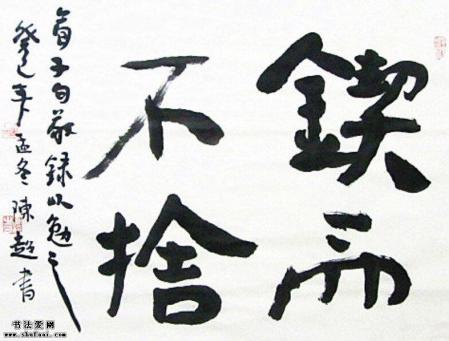 鍥而
不捨
荀子句敬録以勉之
癸巳年孟冬陳超書
书法爱网
www.shufaai.com